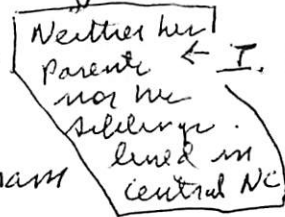 Neither her
Parents ← I.
nor her
siblings.
lived in
central NC